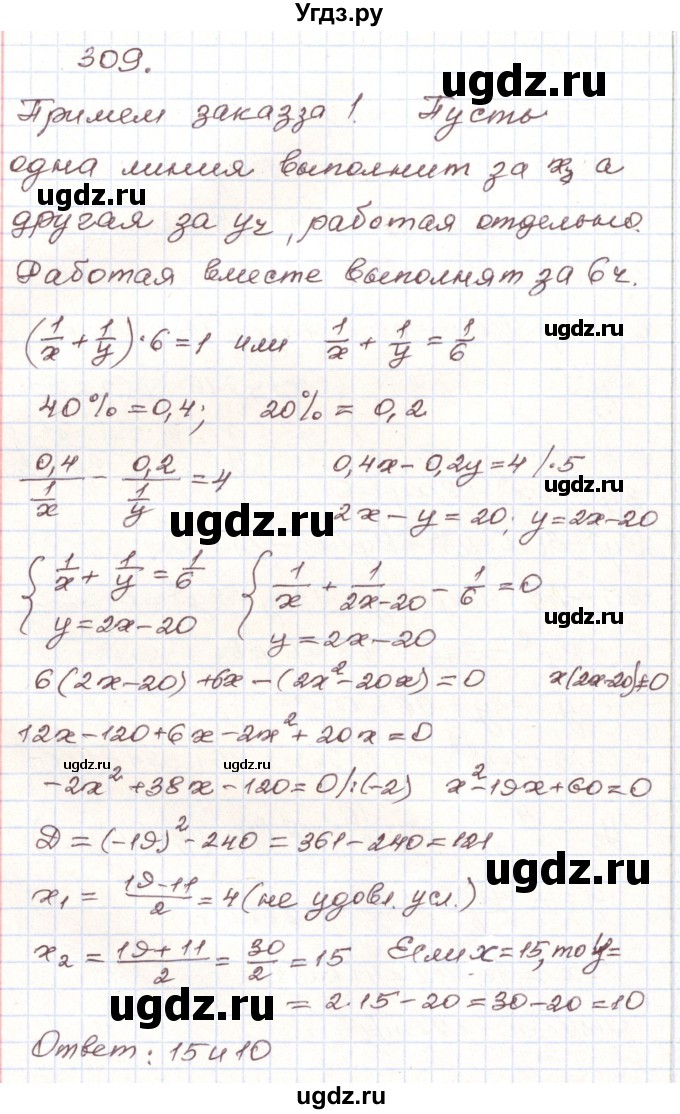 Угдз.ру
309.
ugdz.ru
Примем заказ за 1. Пусть
одна линия выполнит за xч а
ugdz.ru
другая за yч, работая отдельно.
ugdz.ru
Работая вместе выполнят за 6ч.
(1/x + 1/y)·6=1 или 1/x + 1/y = 1/6
ugdz.ru
40% = 0,4; 20% = 0,2
0,4/(1/x) - 0,2/(1/y) = 4 0,4x - 0,2y = 4 /·5
ugdz.ru
ugdz.ru
2x - y = 20; y = 2x-20
{1/x + 1/y = 1/6 {1/x + 1/(2x-20) - 1/6 = 0
ugdz.ru
y = 2x-20 y = 2x-20
6(2x-20) + 6x - (2x²-20x) = 0 x(2x-20)≠0
12x-120+6x-2x²+20x=0
ugdz.ru ugdz.ru
-2x²+38x-120=0/:(-2) x²-19x+60=0
D = (-19)²-240 = 361-240 = 121
ugdz.ru
x₁ = (19-11)/2 = 4 (не удовл. усл.)
x₂ = (19+11)/2 = 30/2 = 15 Если x=15, то y=
ugdz.ru
= 2·15-20 = 30-20 = 10
Ответ: 15 и 10
ugdz.ru